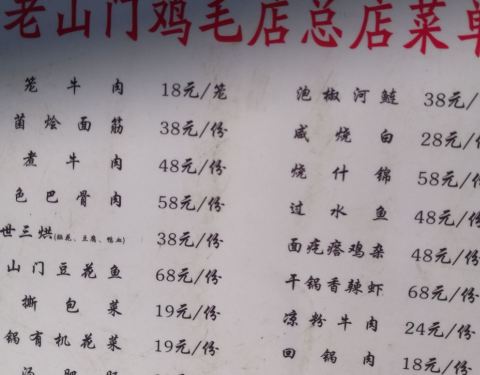 老山门鸡毛店总店菜单
笼牛肉 18元/笼
菌烩面筋 38元/份
煮牛肉 48元/份
色巴骨肉 58元/份
世三烘(脑花、豆腐、鸭血) 38元/份
山门豆花鱼 68元/份
撕包菜 19元/份
锅有机花菜 19元/份
泡椒河鲢 38元/
咸烧白 28元/
烧什锦 58元/
过水鱼 48元/
面疙瘩鸡杂 48元/份
干锅香辣虾 68元/份
凉粉牛肉 24元/份
回锅肉 18元/份